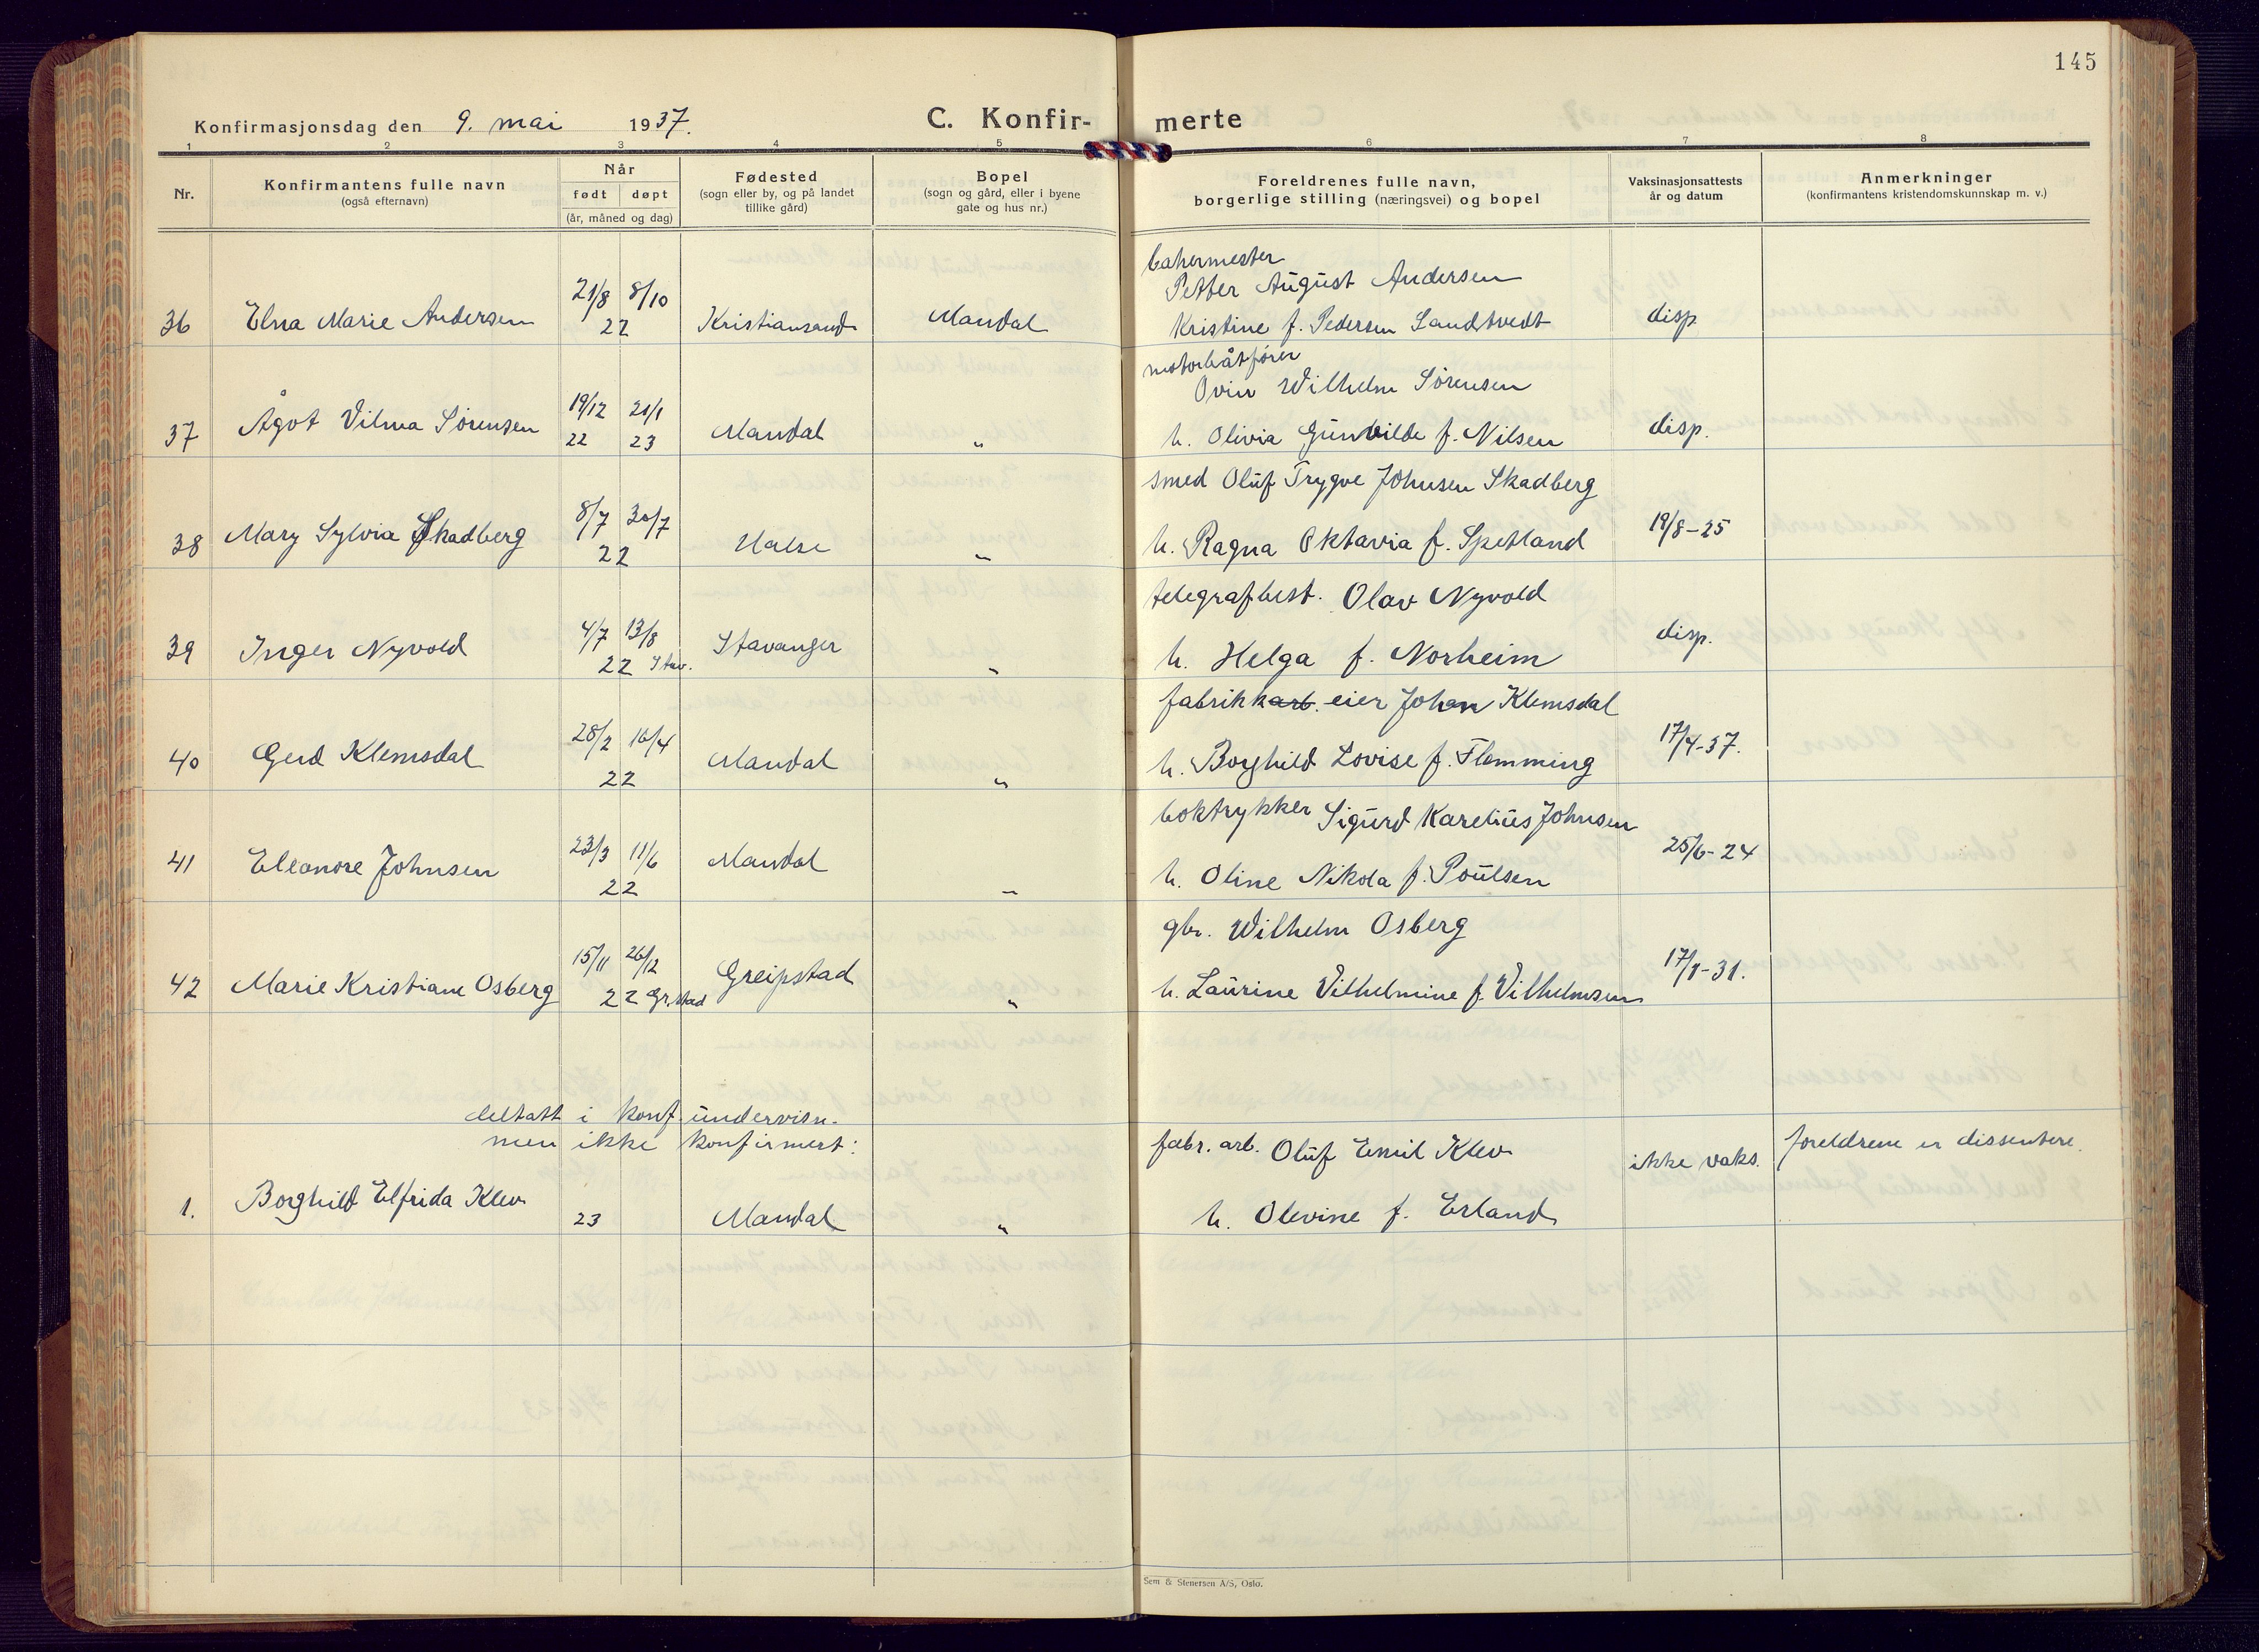 145
Konfirmasjonsdag den 9. mai 1937.
C. Konfir- merte
1 2 3 4 5 6 7 8
Nr.
Konfirmantens fulle navn
(også efternavn)
Når
født døpt
(år, måned og dag)
Fødested
(sogn eller by, og på landet
tillike gård)
Bopel
(sogn og gård, eller i byene
gate og hus nr.)
Foreldrenes fulle navn,
borgerlige stilling (næringsvei) og bopel
Vaksinasjonsattests
år og datum
Anmerkninger
(konfirmantens kristendomskunnskap m. v.)
bakermester
36 Elna Marie Andersen 21/8 8/10 22 Kristiansand Mandal Petter August Andersen
Kristine f. Pedersen Landtvedt disp.
motorbåtfører
Ovin Wilhelm Sörensen
37 Ågot Vilma Sörensen 19/12 22 21/1 23 Mandal " h. Olivia Gunvilde f. Nilsen disp.
smed Oluf Trygve Johnsen Skadberg
38 Mary Sylvia Skadberg 8/7 30/7 22 Halse " h. Ragna Oktavia f. Spetland 19/8-25
telegrafbest. Olav Nyvold
39 Inger Nyvold 4/7 13/8 22 Stav. Stavanger " h. Helga f. Norheim disp.
fabrikkarb. eier Johan Klemsdal
40 Gerd Klemsdal 28/2 16/4 22 Mandal " h. Borghild Lovise f. Flemming 17/4-37.
boktrykker Sigurd Karelius Johnsen
41 Eleanore Johnsen 23/3 11/6 22 Mandal " h. Oline Nikola f. Poulsen 25/6-24
gbr. Wilhelm Osberg
42 Marie Kristiane Osberg 15/11 26/12 22 Gr.stad Greipstad " h. Laurine Vilhelmine f. Vilhelmsen 17/1-31.
deltatt i konf. undervisn.
men ikke konfirmert:
fabr. arb. Oluf Emil Klev ikke vaks. foreldrene er dissentere.
1. Borghild Elfrida Klev 23 Mandal " h. Olevine f. Erland
Sem & Stenersen A/S, Oslo.